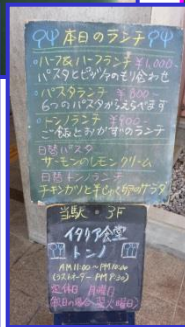 本日のランチ
・ハーフ&ハーフランチ ¥1,000-
パスタとピッツァのもり合わせ
・パスタランチ ¥800-
6つのパスタがえらべます
・トンノランチ ¥900-
ご飯とおかずのランチ
日替パスタ
サーモンのレモンクリーム
日替トンノランチ
チキンカツと
のサラダ
当駅・3F
イタリア食堂
トンノ
AM11:00〜PM
(ラストオーダー PM
定休日 月曜日
(祝日の場合翌火曜日)